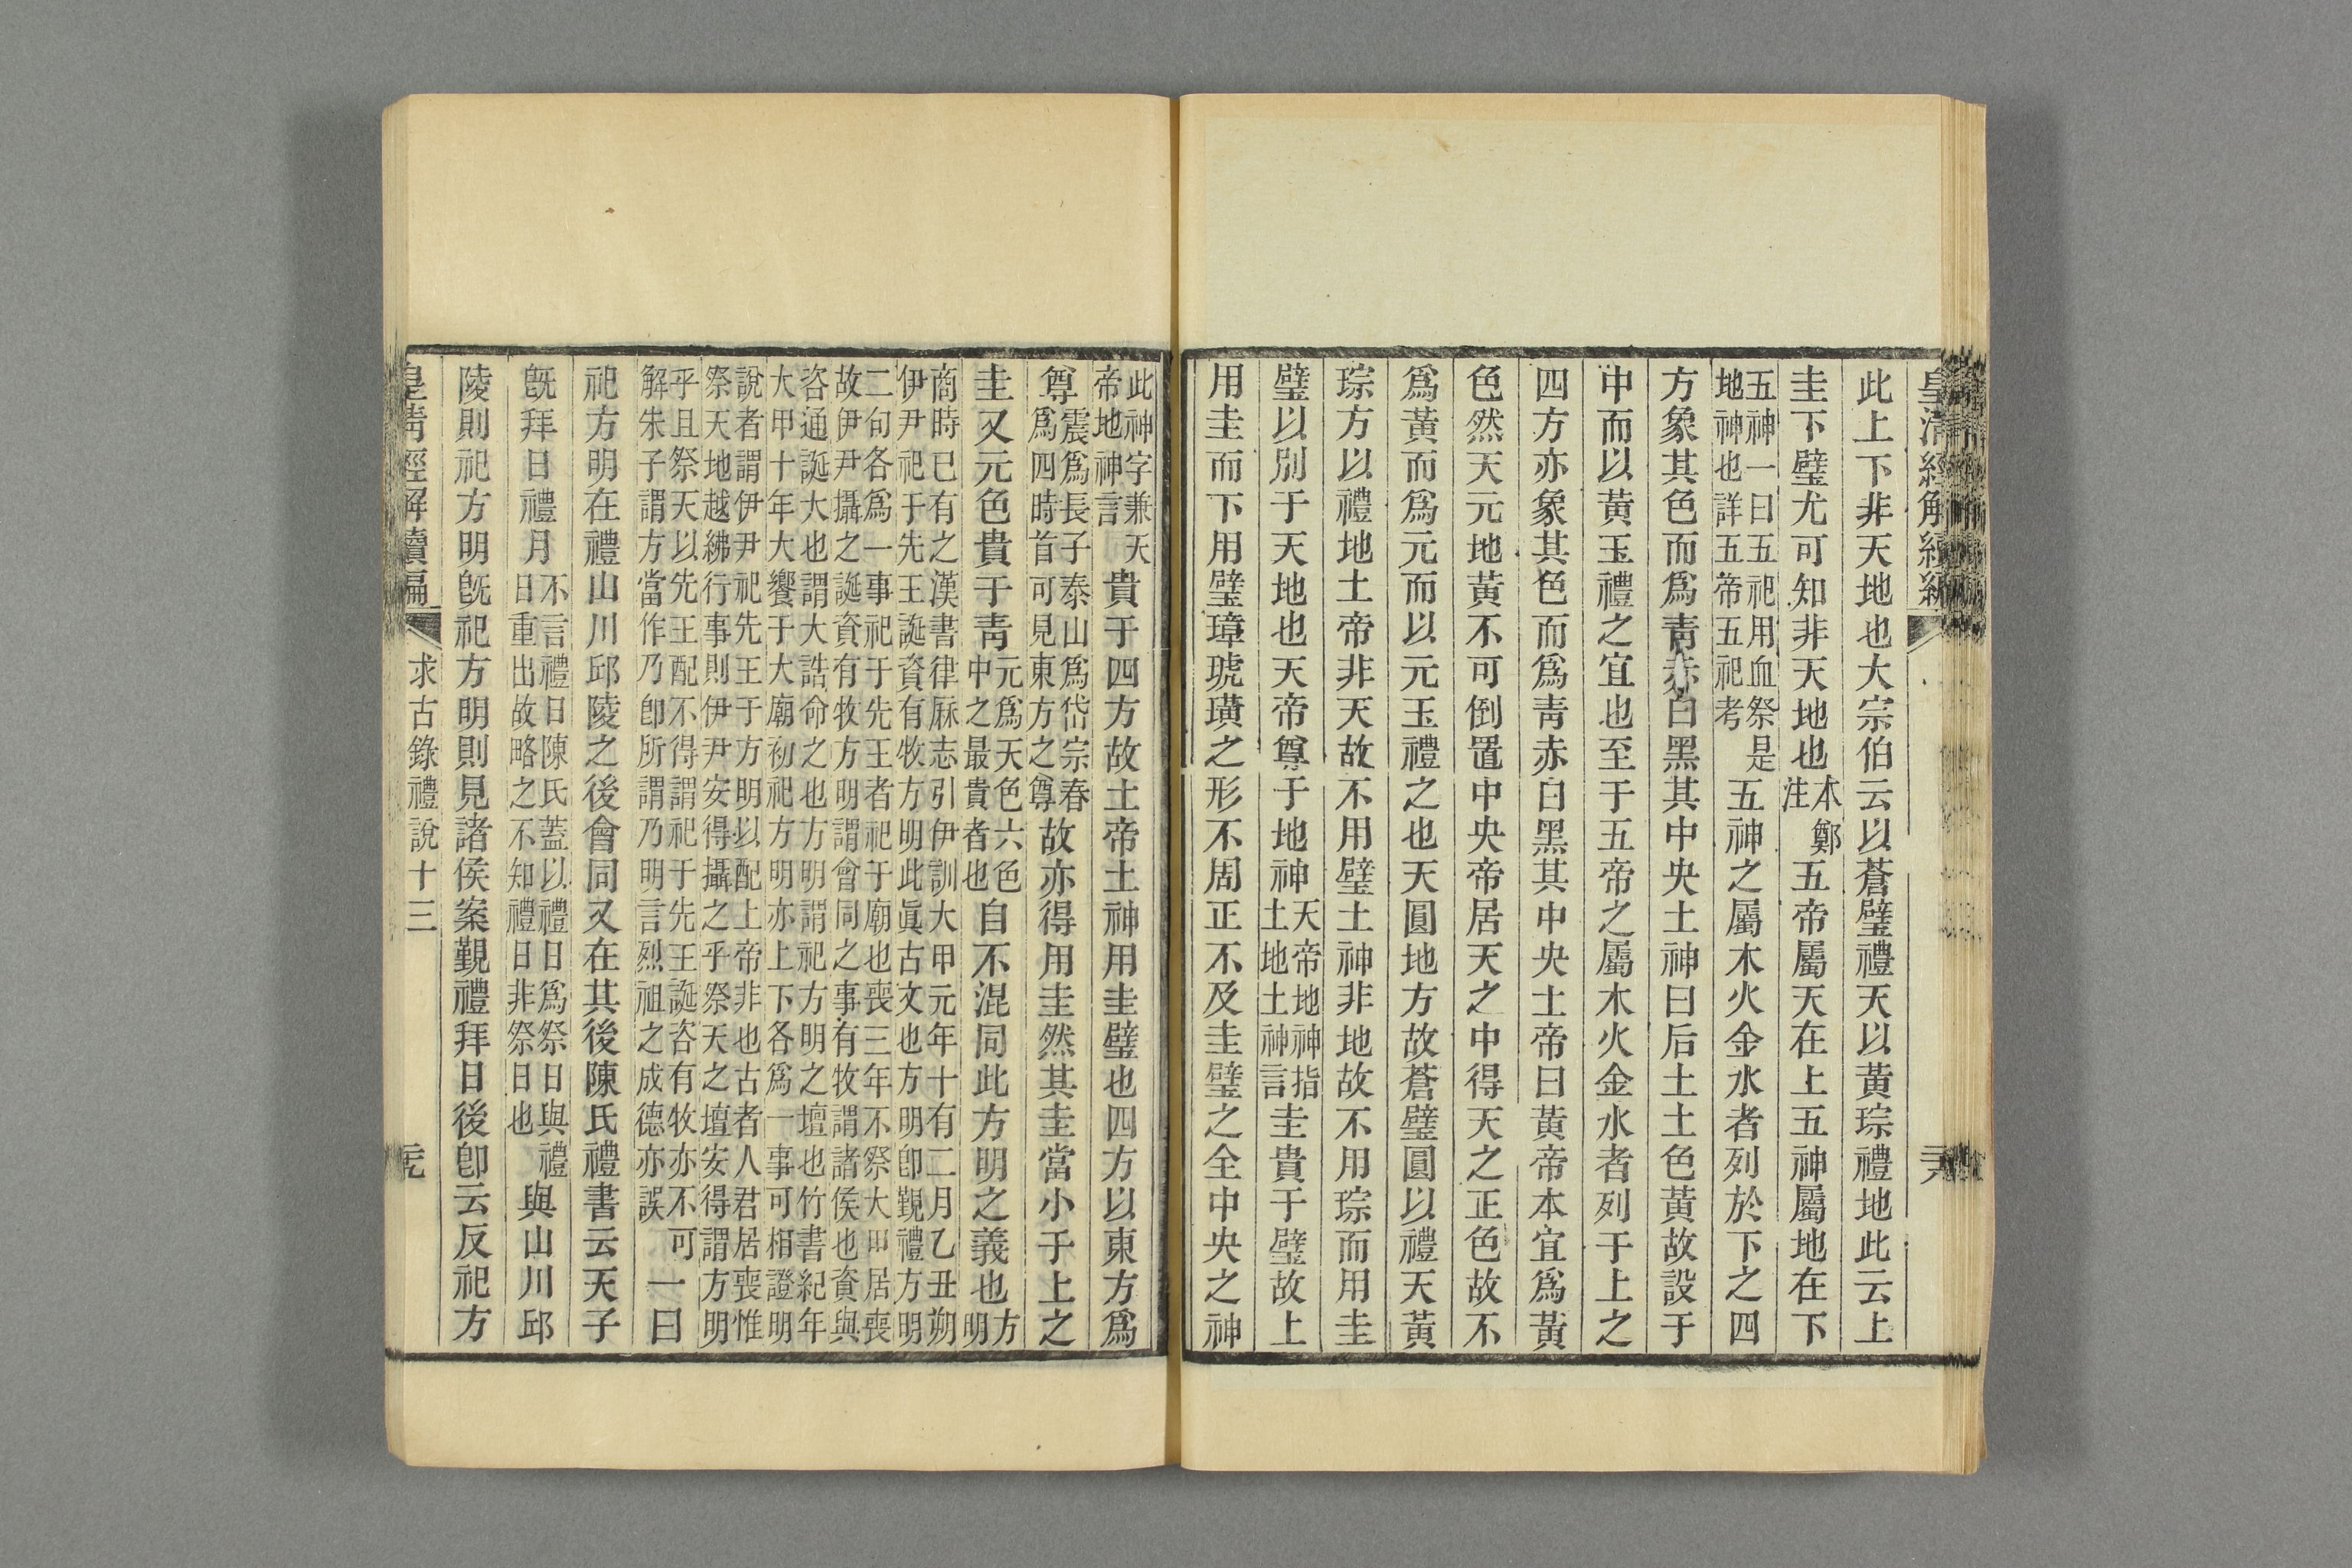 皇清經解續編
此上下非天地也大宗伯云以蒼璧禮天以黃琮禮地此云上
圭下璧尤可知非天地也本鄭注五帝屬天在上五神屬地在下
五神一曰五祀用血祭是地神也詳五帝五祀考五神之屬木火金水者列於下之四
方象其色而爲靑赤白黑其中央土神曰后土土色黃故設于
中而以黃玉禮之宜也至于五帝之屬木火金水者列于上之
四方亦象其色而爲靑赤白黑其中央土帝曰黃帝本宜爲黃
色然天元地黃不可倒置中央帝居天之中得天之正色故不
爲黃而爲元而以元玉禮之也天圓地方故蒼璧圓以禮天黃
琮方以禮地土帝非天故不用璧土神非地故不用琮而用圭
璧以別于天地也天帝尊于地神天帝地神指土地土神言圭貴于璧故上
用圭而下用璧璋琥璜之形不周正不及圭璧之全中央之神
此神字兼天帝地神言貴于四方故土帝土神用圭璧也四方以東方爲
尊震爲長子泰山爲岱宗春爲四時首可見東方之尊故亦得用圭然其圭當小于上之
圭又元色貴于靑元爲天色六色中之最貴者也自不混同此方明之義也方明
商時已有之漢書律厤志引伊訓大甲元年十有二月乙丑朔
伊尹祀于先王誕資有牧方明此眞古文也方明卽覲禮方明
二句各爲一事祀于先王者祀于廟也喪三年不祭大甲居喪
故伊尹攝之誕資有牧方明謂會同之事有牧謂諸侯也資與
咨通誕大也謂大誥命之也方明謂祀方明之壇也竹書紀年
大甲十年大饗于大廟初祀方明亦上下各爲一事可相證明
說者謂伊尹祀先王于方明以配上帝非也古者人君居喪惟
祭天地越紼行事則伊尹安得攝之乎祭天之壇安得謂方明
乎且祭天以先王配不得謂祀于先王誕咨有牧亦不可
解朱子謂方當作乃卽所謂乃明言烈祖之成德亦誤一曰
祀方明在禮山川邱陵之後會同又在其後陳氏禮書云天子
旣拜日禮月不言禮日陳氏蓋以禮日爲祭日與禮日重出故略之不知禮日非祭日也與山川邱
陵則祀方明旣祀方明則見諸侯案覲禮拜日後卽云反祀方
皇清經解續編
求古錄禮說十三